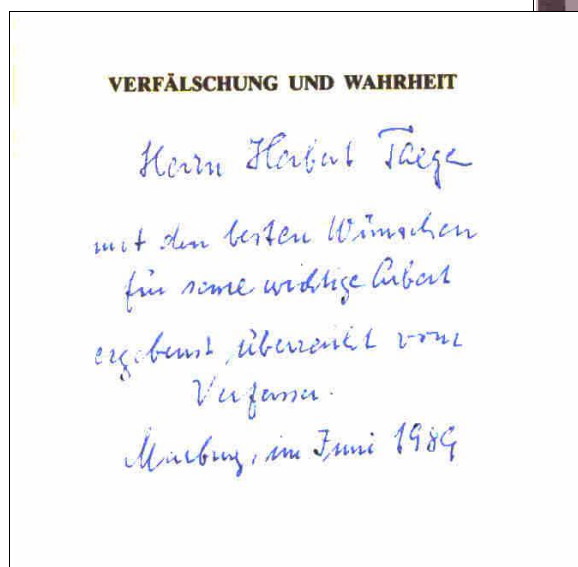 VERFÄLSCHUNG UND WAHRHEIT
Herrn Herbert Taege
mit den besten Wünschen
für seine wichtige Arbeit
ergebenst überreicht vom
Verfasser.
Marburg, im Juni 1989